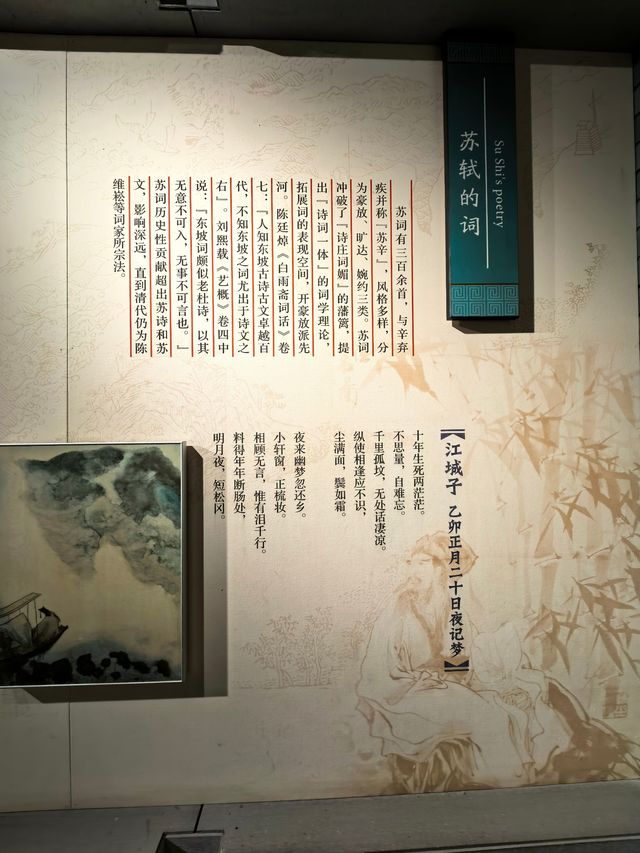 苏轼的词
Su Shi's poetry
苏词有三百余首，与辛弃
疾并称『苏辛』，风格多样，分
为豪放、旷达、婉约三类。苏词
冲破了『诗庄词媚』的藩篱，提
出『诗词一体』的词学理论，
拓展词的表现空间，开豪放派先
河。陈廷焯《白雨斋词话》卷
七：『人知东坡古诗古文卓越百
代，不知东坡之词尤出于诗文之
右』。刘熙载《艺概》卷四中
说：『东坡词颇似老杜诗，以其
无意不可入，无事不可言也。』
苏词历史性贡献超出苏诗和苏
文，影响深远，直到清代仍为陈
维崧等词家所宗法。
【江城子 乙卯正月二十日夜记梦】
十年生死两茫茫。
不思量，自难忘。
千里孤坟，无处话凄凉。
纵使相逢应不识，
尘满面，鬓如霜。
夜来幽梦忽还乡。
小轩窗，正梳妆。
相顾无言，惟有泪千行。
料得年年断肠处，
明月夜，短松冈。